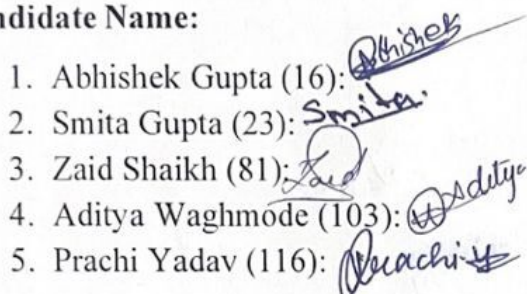 ndidate Name:
1. Abhishek Gupta (16): Abhishek
2. Smita Gupta (23): Smita.
3. Zaid Shaikh (81): Zaid
4. Aditya Waghmode (103): Aditya
5. Prachi Yadav (116): Prachi